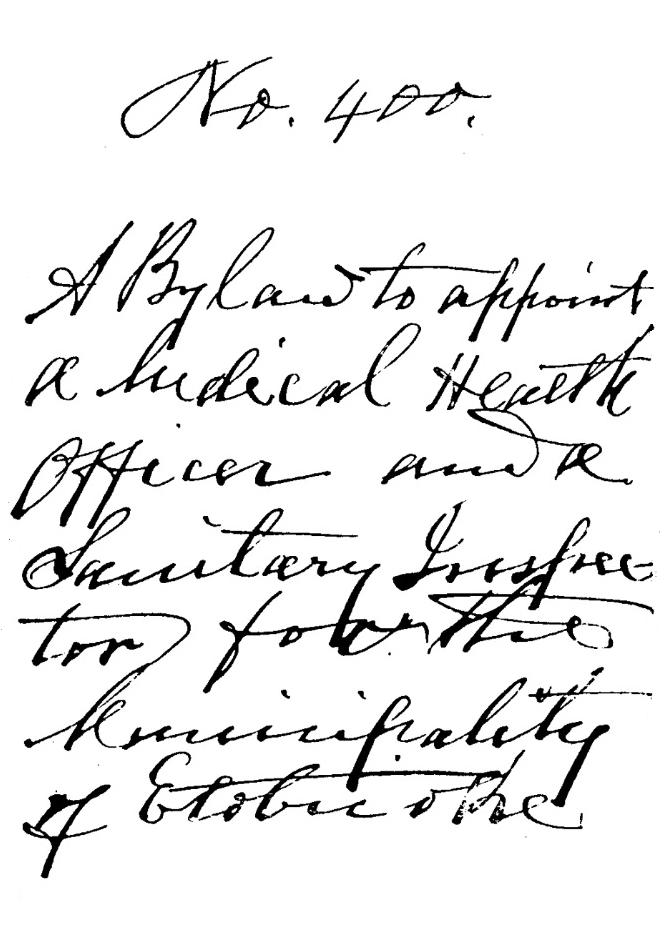 No. 400.
A Bylaw to appoint
a Medical Health
Officer and a
Sanitary Inspec-
tor for the
Municipality
of Etobicoke